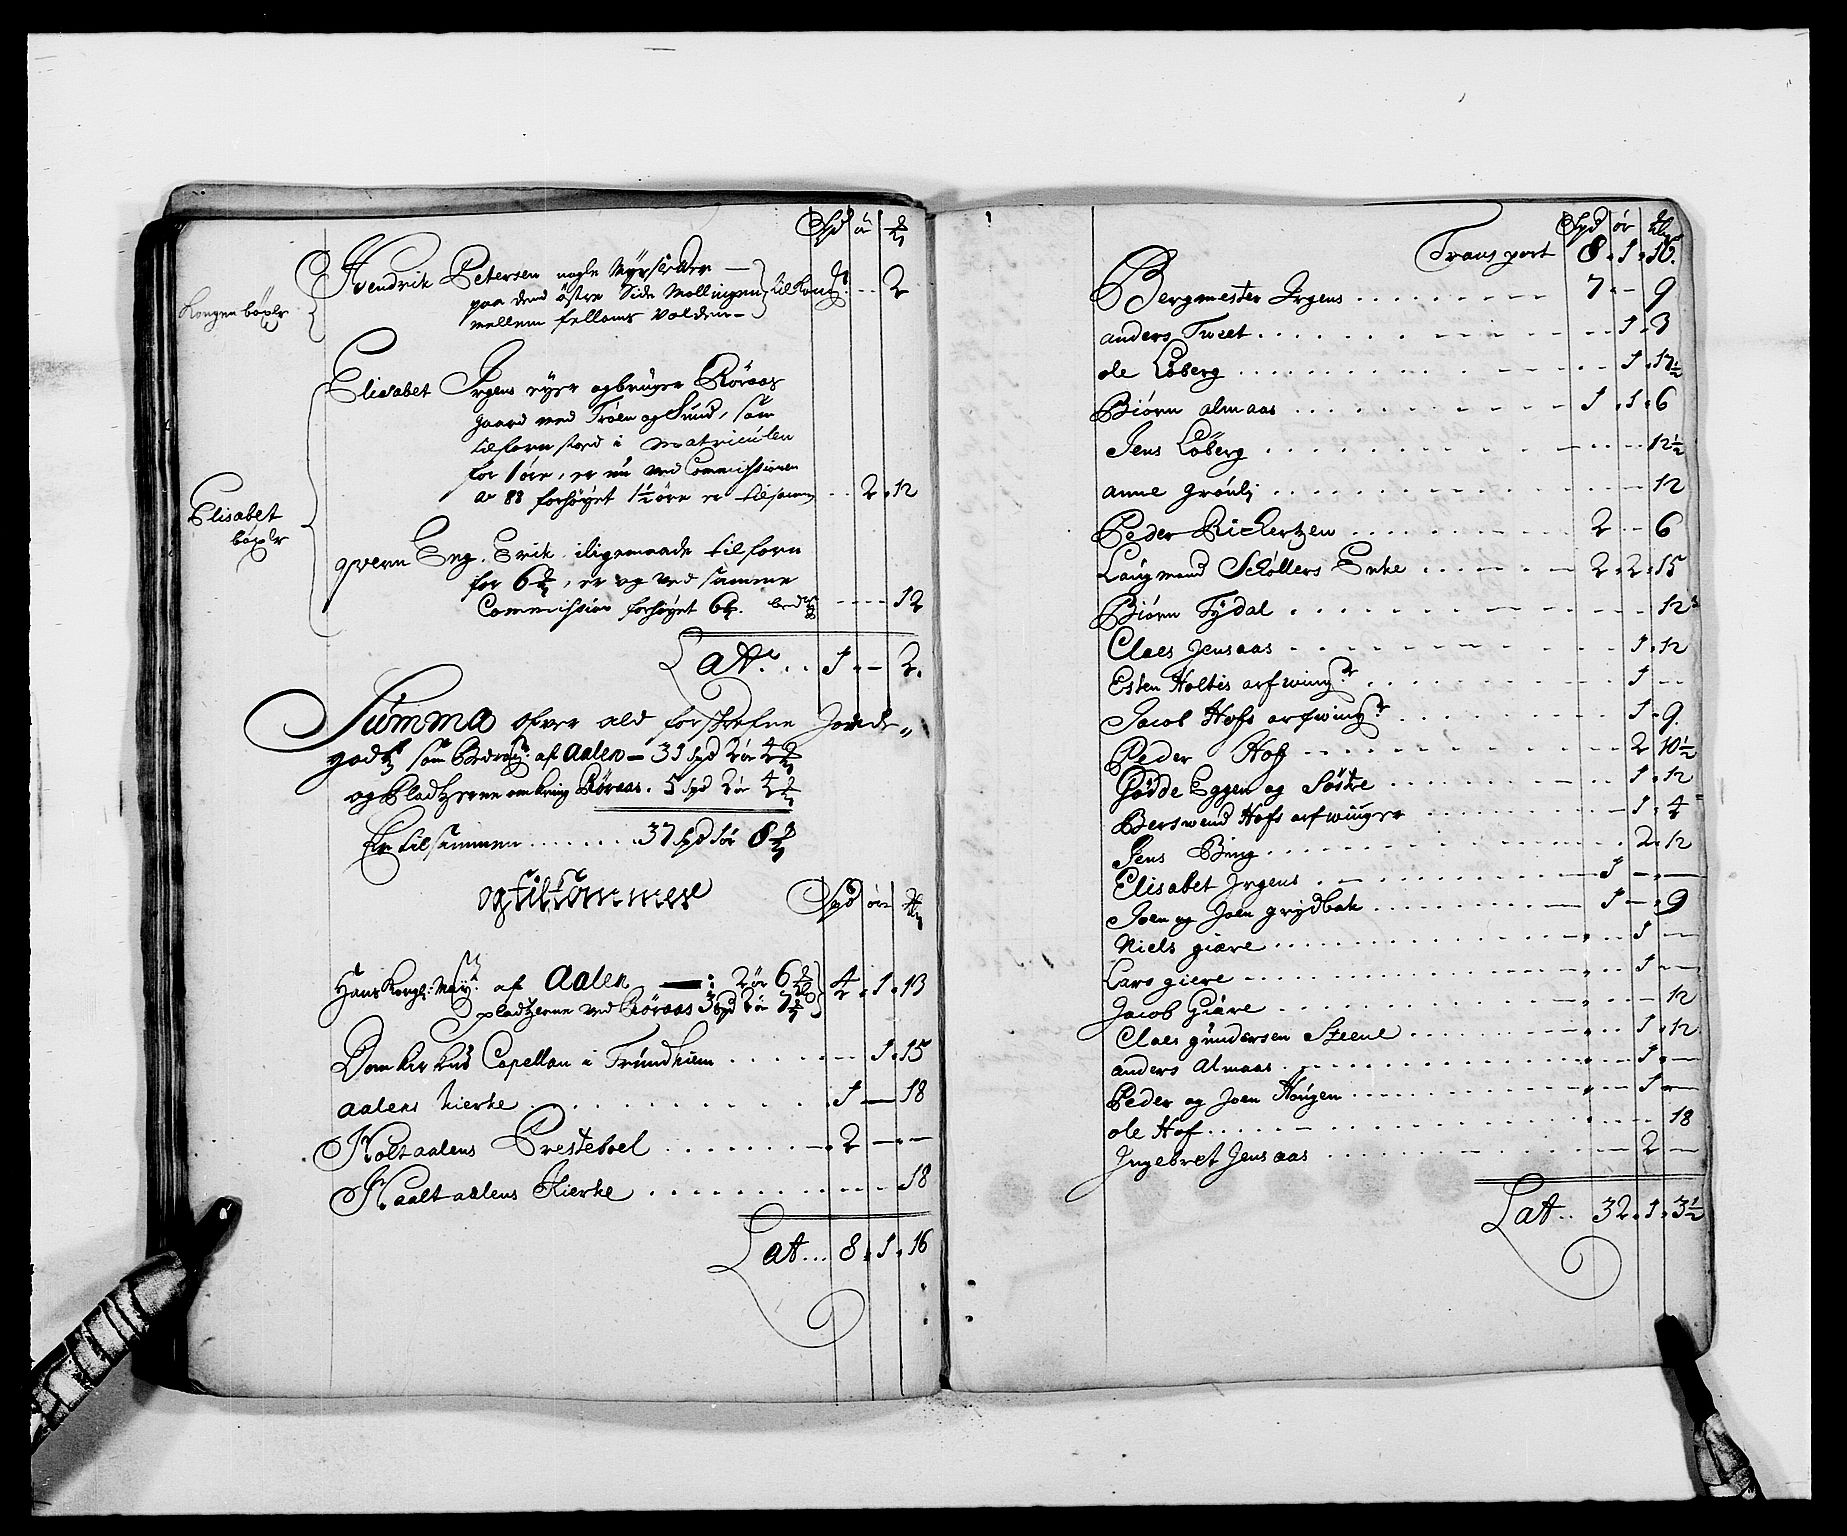 Spd ör
Hendrik Petersen nogle Myrsletter
Kongen böxler
paa dend östre Side Mollingen til Kong: . . 2
mellem fellams Volden
Elisabet Irgens eyer og bruger Röraas
gaard med Troen og Sund, som
tilforn stod i Matriculen
for 1 öre, er nu ved Commissionen
av 88 forhöyet 1½ öre er tilsam . . 2 . 12
Elisabet
böxler
qvern Eng. Erik iligemaade tilforn
for 6, er og ved samme
Commission forhöyet 6 . . . 12
Lat. . . 1 . - 2.
Summa ofver ald forskrefne Jorde-
godtz som Bedrag: af Aalen - 31 Spd 2 ör 4
og Pladtzerne omkring Röraas. 5 Spd 2 ör 4
Er tilsammen . . . . . . . 37 Spd 1 ör 8
og tilkommer Spd ör
Hans Kongl: May: af Aalen — : 2 ör 6
pladtzerne ved Röraas 3 Spd 2 ör 7 4 . 1 . 13
Domkirkens Capellan i Trundhiem . . . . 1 . 15
Aalens kierke . . . . . . 1 — 18
Holtaalens Prestebol . . . . . . 2 — . —
Haaltaalens Kierke . . . . . . 18
Lat . . . 8 . 1 . 16
Spd ör
Transport 8 . 1 . 16.
Bergmester Irgens . . . . . . 7 . - 9
anders Tweet . . . . . . 1 . 3
ole Löberg . . . . . . 1 . 17½
Biörn almaas . . . . . . 1 . 1 . 6
Jens Löberg . . . . . . 12½
anne grönli . . . . . . 12
Peder Richertzen . . . . . . 2 . - 6
Laugmand Schöllers Enke . . . . . . 2 . 2 . 15
Biörn Tydal . . . . . . 12
Claes Jensaas . . . . . . 1 . 12
Esten Holtis arfwing: . . . . . . 1 . —
Jacob Hofs arfwing: . . . . . . 1 . 9
Peder Hof . . . . . . 2 10½
Gödde Eggen og Söstre . . . . . . 1 . 12
Berswend Hofs arfwinger . . . . . . 1 . 4
Jens Bing . . . . . . 2 . 12
Elisabet Irgens . . . . . . 1 — . —
Joen og Joen grydbak . . . . . . 1 — . 9
Niels giære . . . . . . 1 —
Lars giere . . . . . . 1 —
Jacob Giære . . . . . . 12
Claes gundersen Steene . . . . . . 1 . 12
anders Almaas . . . . . . 1 . —
Peder og Joen Hougen . . . . . . 1 —
ole Hof . . . . . . 18
Ingebret Jensaas . . . . . . 2 —
Lat . . 32 . 1 . 3½